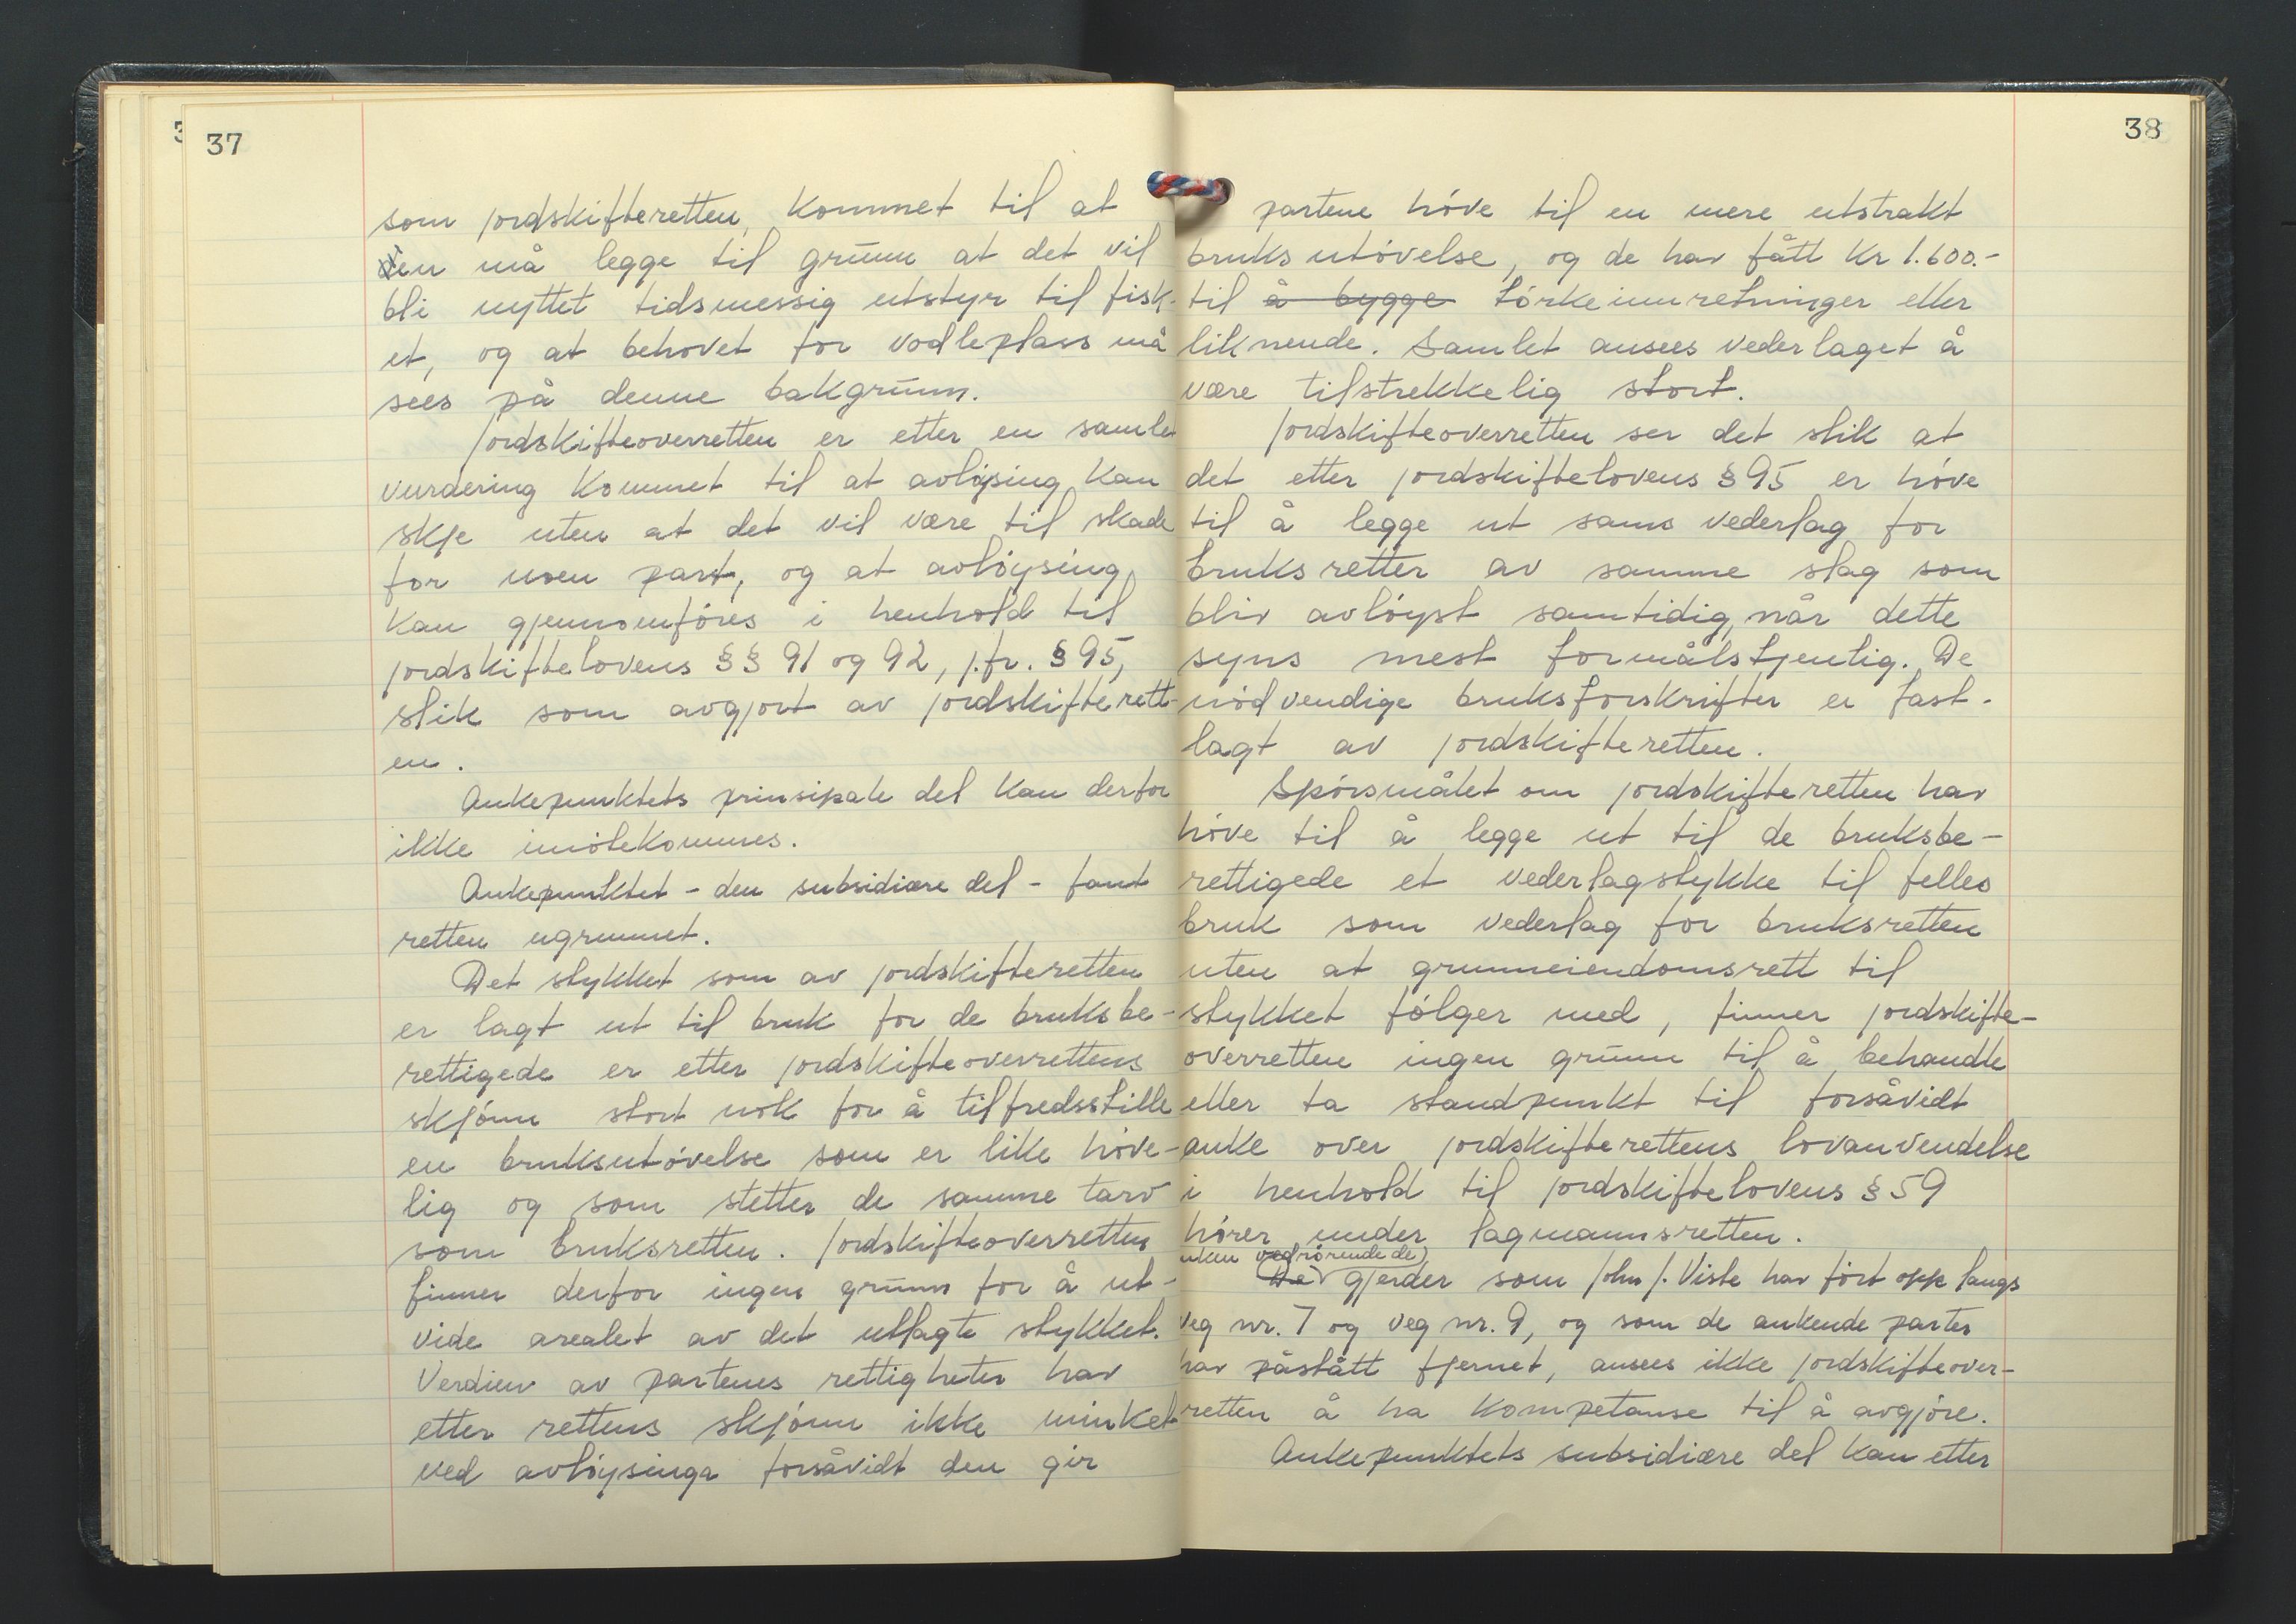 37
som jordskifteretten, kommet til at
en må legge til grunn at det vil
bli nyttet tidsmessig utstyr til fisk-
et, og at behovet for vodleplass må
sees på denne bakgrunn.
Jordskifteoverretten er etter en samlet
vurdering kommet til at avløysing kan
skje uten at det vil være til skade
for noen part, og at avløysing
kan gjennomføres i henhold til
jordskiftelovens §§ 91 og 92, j.fr. § 95,
slik som avgjort av jordskifterett-
en.
Ankepunktets prinsipale del kan derfor
ikke imøtekommes.
Ankepunktet - den subsidiære del - fant
retten ugrunnet.
Det stykket som av jordskifteretten
er lagt ut til bruk for de bruksbe-
rettigede er etter jordskifteoverrettens
skjønn stort nok for å tilfredsstille
en bruksutøvelse som er like høve-
lig og som støtter de samme tarv
som bruksretten. Jordskifteoverretten
finner derfor ingen grunn for å ut-
vide arealet av det utlagte stykket.
Verdien av partenes rettigheter har
etter rettens skjønn ikke minket
ved avløysinga forsåvidt den gir
38
partene høve til en mere utstrakt
bruksutøvelse, og de har fått kr 1.600.-
til å bygge tørkeinnretninger eller
liknende. Samlet ansees vederlaget å
være tilstrekkelig stort.
Jordskifteoverretten ser det slik at
det etter jordskiftelovens § 95 er høve
til å legge ut sams vederlag for
bruksretter av samme slag som
blir avløyst samtidig, når dette
syns mest formålstjenlig. De
nødvendige bruksforskrifter er fast-
lagt av jordskifteretten.
Spørsmålet om jordskifteretten har
høve til å legge ut til de bruksbe-
rettigede et vederlagstykke til felles
bruk som vederlag for bruksretten
uten at grunneiendomsrett til
stykket følger med, finner jordskifte-
overretten ingen grunn til å behandle
eller ta standpunkt til forsåvidt
anke over jordskifterettens lovanvendelse
i henhold til jordskiftelovens § 59
hører under lagmannsretten.
anken vedrørende de
De gjerder som John J. Viste har ført opp langs
veg nr. 7 og veg nr. 9, og som de ankende parter
har påstått fjernet, ansees ikke jordskifteover-
retten å ha kompetanse til å avgjøre.
Ankepunktets subsidiære del kan etter